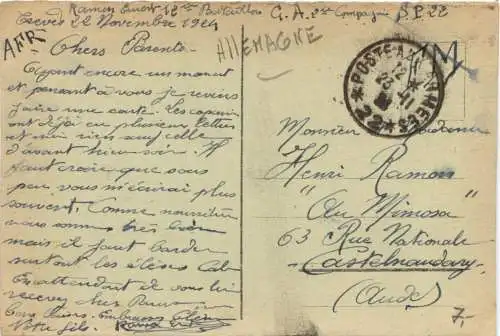 Ramon 12e Bataillon G. A. 2me Compagnie S.P. 22
Trèves 22 Novembre 1924
AFR
ALLEMAGNE
Chers Parents
Ayant encore un moment
et pensant à vous je reviens
faire une carte. Les copains
ont déjà eu plusieurs lettres
et moi rien sauf celle
d'avant hier soir. Il
faut croire que sous
peu vous m'écrirai plus
souvent. Comme nourriture
nous sommes très bien
mais il faut barder
surtout les élèves
En attendant de vous lire
recevez chers
Votre fils.
POSTE AUX ARMEES
22
Monsieur
Henri Ramon
"Au Mimosa"
63 Rue Nationale
Castelnaudary
(Aude)
7,-